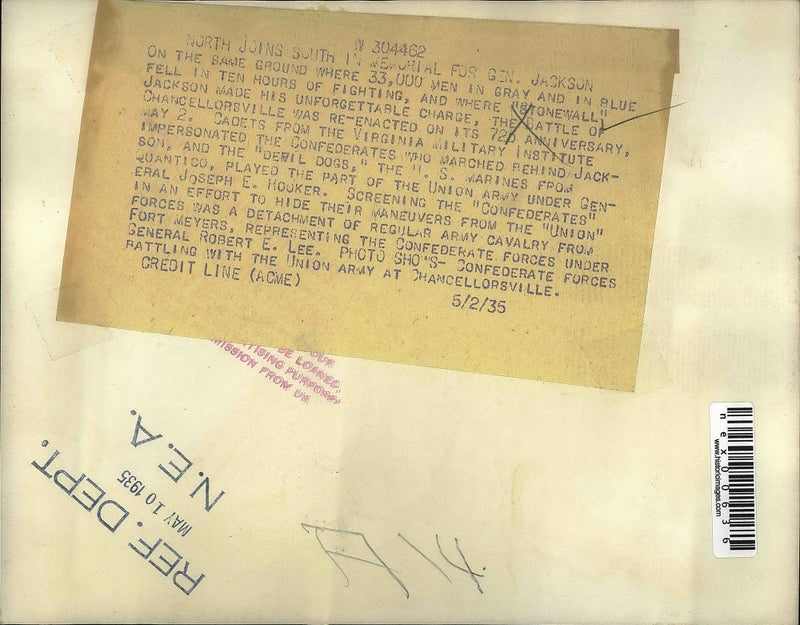 W 304462
NORTH JOINS SOUTH IN MEMORIAL FOR GEN. JACKSON
ON THE SAME GROUND WHERE 33,000 MEN IN GRAY AND IN BLUE
FELL IN TEN HOURS OF FIGHTING, AND WHERE "STONEWALL"
JACKSON MADE HIS UNFORGETTABLE CHARGE, THE BATTLE OF
CHANCELLORSVILLE WAS RE-ENACTED ON ITS 72D ANNIVERSARY,
MAY 2. CADETS FROM THE VIRGINIA MILITARY INSTITUTE
IMPERSONATED THE CONFEDERATES WHO MARCHED BEHIND JACK-
SON, AND THE "DEVIL DOGS," THE U. S. MARINES FROM
QUANTICO, PLAYED THE PART OF THE UNION ARMY UNDER GEN-
ERAL JOSEPH E. HOOKER. SCREENING THE "CONFEDERATES"
IN AN EFFORT TO HIDE THEIR MANEUVERS FROM THE "UNION"
FORCES WAS A DETACHMENT OF REGULAR ARMY CAVALRY FROM
FORT MEYERS, REPRESENTING THE CONFEDERATE FORCES UNDER
GENERAL ROBERT E. LEE. PHOTO SHOWS- CONFEDERATE FORCES
BATTLING WITH THE UNION ARMY AT CHANCELLORSVILLE.
CREDIT LINE (ACME)
5/2/35
OUR
BE LOANED,
TISING PURPOSES
MISSION FROM US
REF. DEPT.
MAY 10 1935
N.E.A.
nex00636
www.historicimages.com